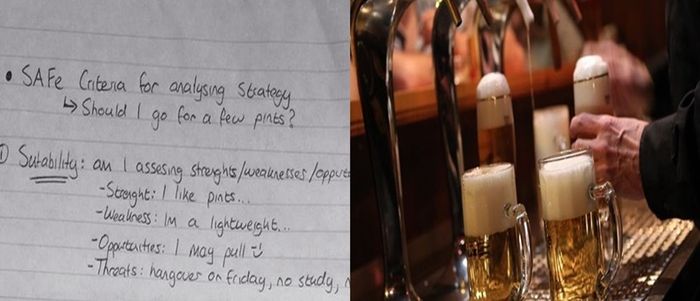 • SAFe Criteria for analysing strategy
↳ Should I go for a few pints?
① Sutability: am I assesing strenghts/weaknesses/
- Strenght: I like pints...
- Weakness: Im a lightweight...
- Opportunities: I may pull :)
- Threats: hangover on friday, no study,